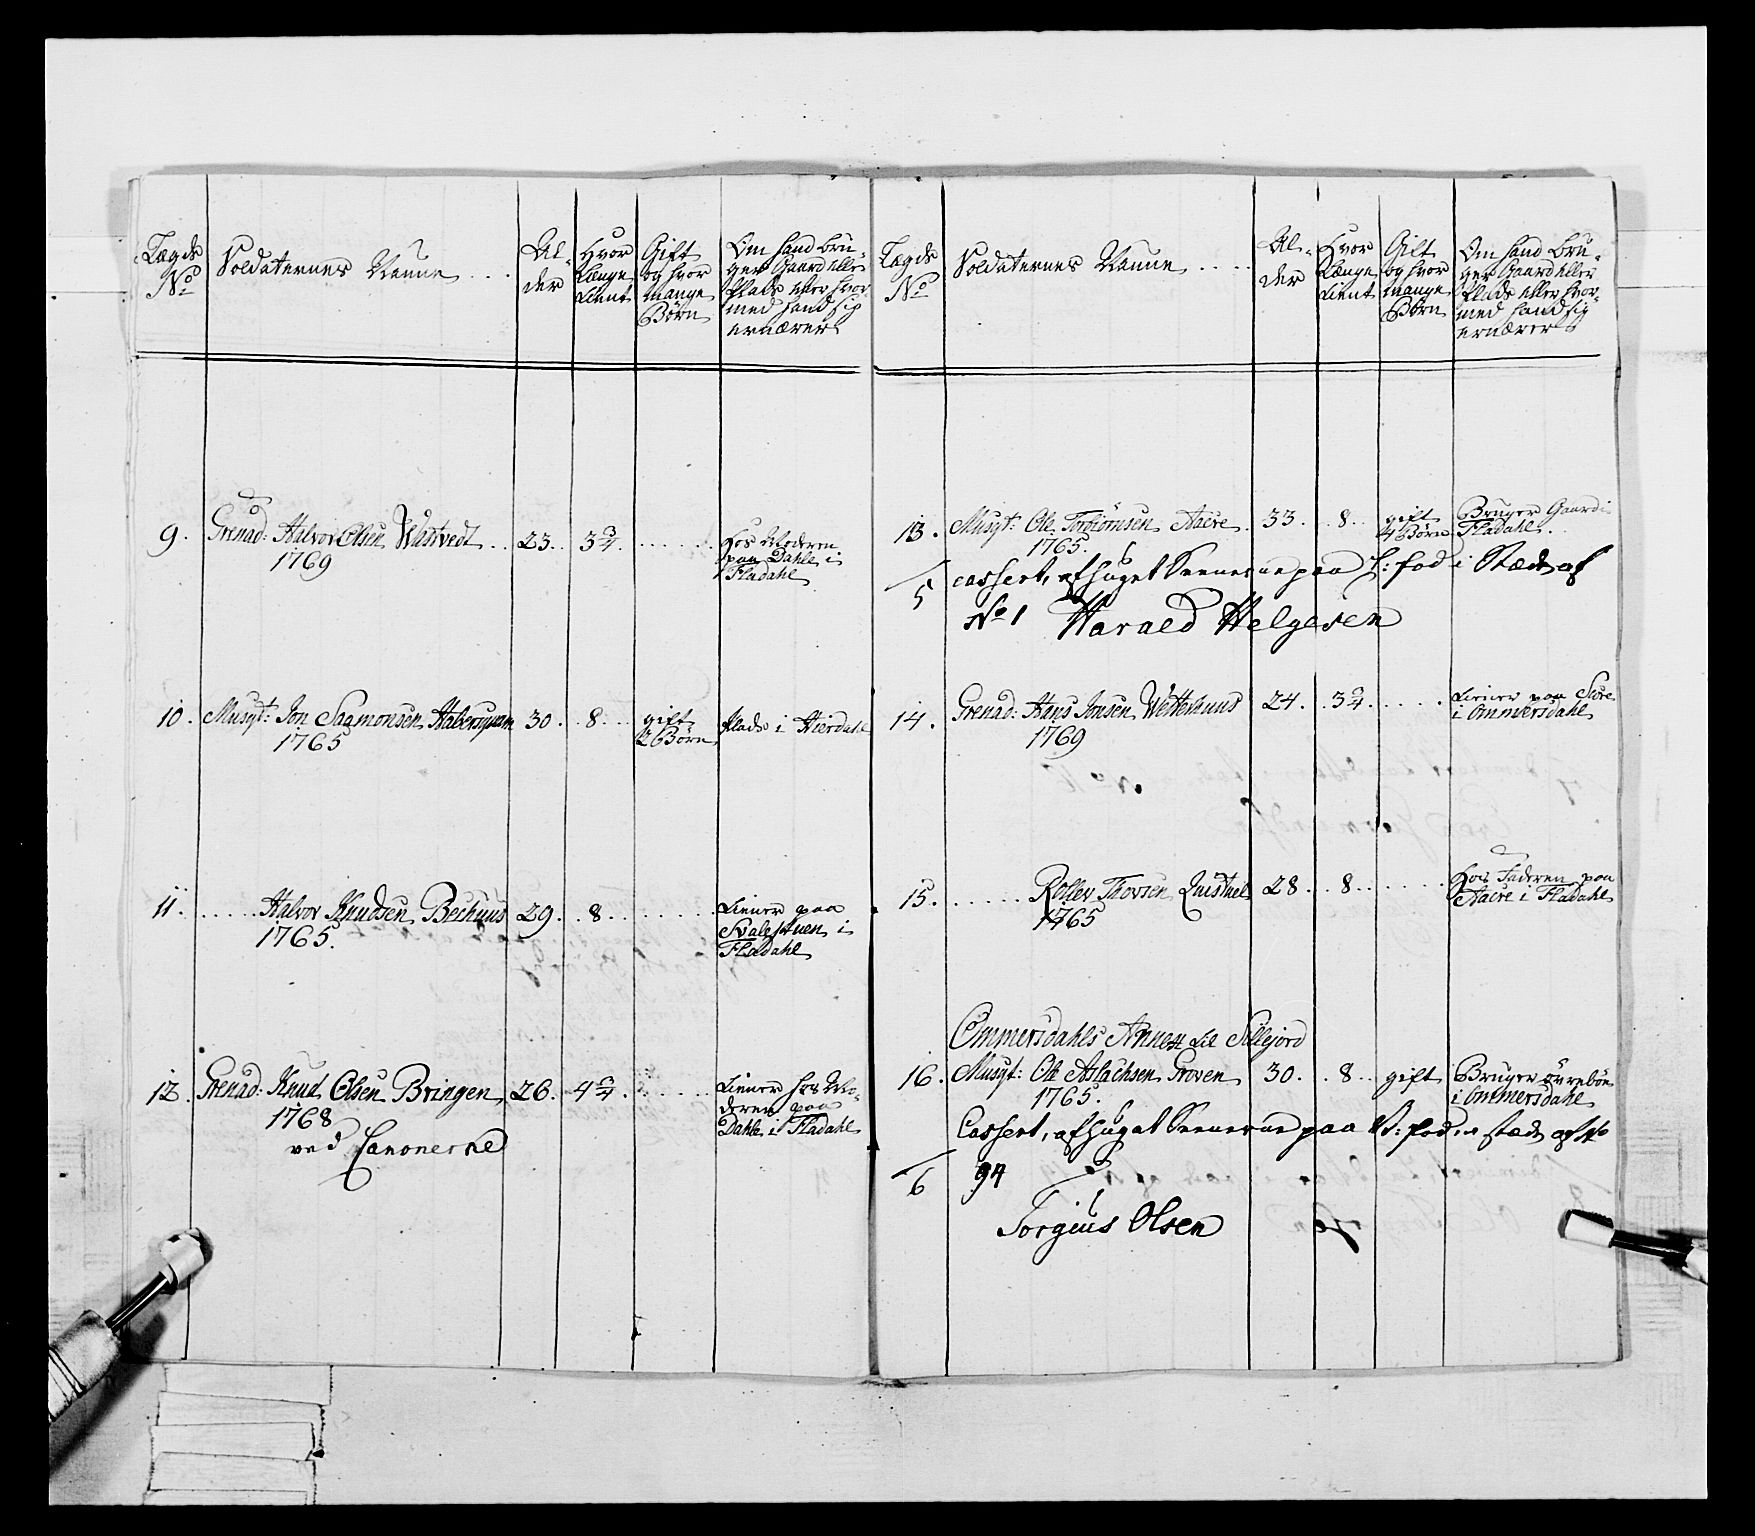 Lægds No | Soldaternes Naune | Al- der | Hvor Længe tient | Gift og hvor mange Børn | Om hand bru- ger Gaard eller Plads eller hvor- med hand sig ernærer
9. | Grenad: Halvor Olsen Wastvedt 1769 | 23. | 3 3/4. | | hos Moderen paa Dahle i Fladahl
10. | Musqt: Jon Sagmonsen 1765 | 30. | 8. | gift 2 Børn | Plads i Hierdahl
11. | Halvor Knudsen Bechuus 1765. | 29. | 8. | | tiener paa Svalestuen i Fladahl
12. | Grenad: Knud Olsen Bringen 1768 | 26. | 4 3/4. | | tiener hos Mo- deren paa Dahle i Fladahl
ved Canonerne
Lægds No | Soldaternes Naune | Al- der | Hvor Længe tient | Gift og hvor mange Børn | Om hand bru- ger Gaard eller Plads eller hvor- med hand sig ernærer
13. | Musqt: Ole Torbiörnsen Aacre 1765. | 33. | 8. | gift 4 Børn | Bruger Gaard i Fladahl.
5 cassert, afhuget Senerne paa fod i Stæde af
No 1 Harald Helgesen
14. | Grenad: Hans Jonsen Wetterhuus 1769 | 24. | 3 3/4. | | tiener paa i Ommersdahl
15. | Rollev Thovsen 1765 | 28. | 8. | | hos Faderen paa Aacre i Fladahl
Ommersdahls Annex til Sillejord
16. | Musqt: Ole Aslachsen Groven 1765. | 30. | 8. | gift | Bruger övrebøe i Ommersdahl
6 Cassert, afhuget Senerne paa V: fod i stæde af No
94
Torgius Olsen